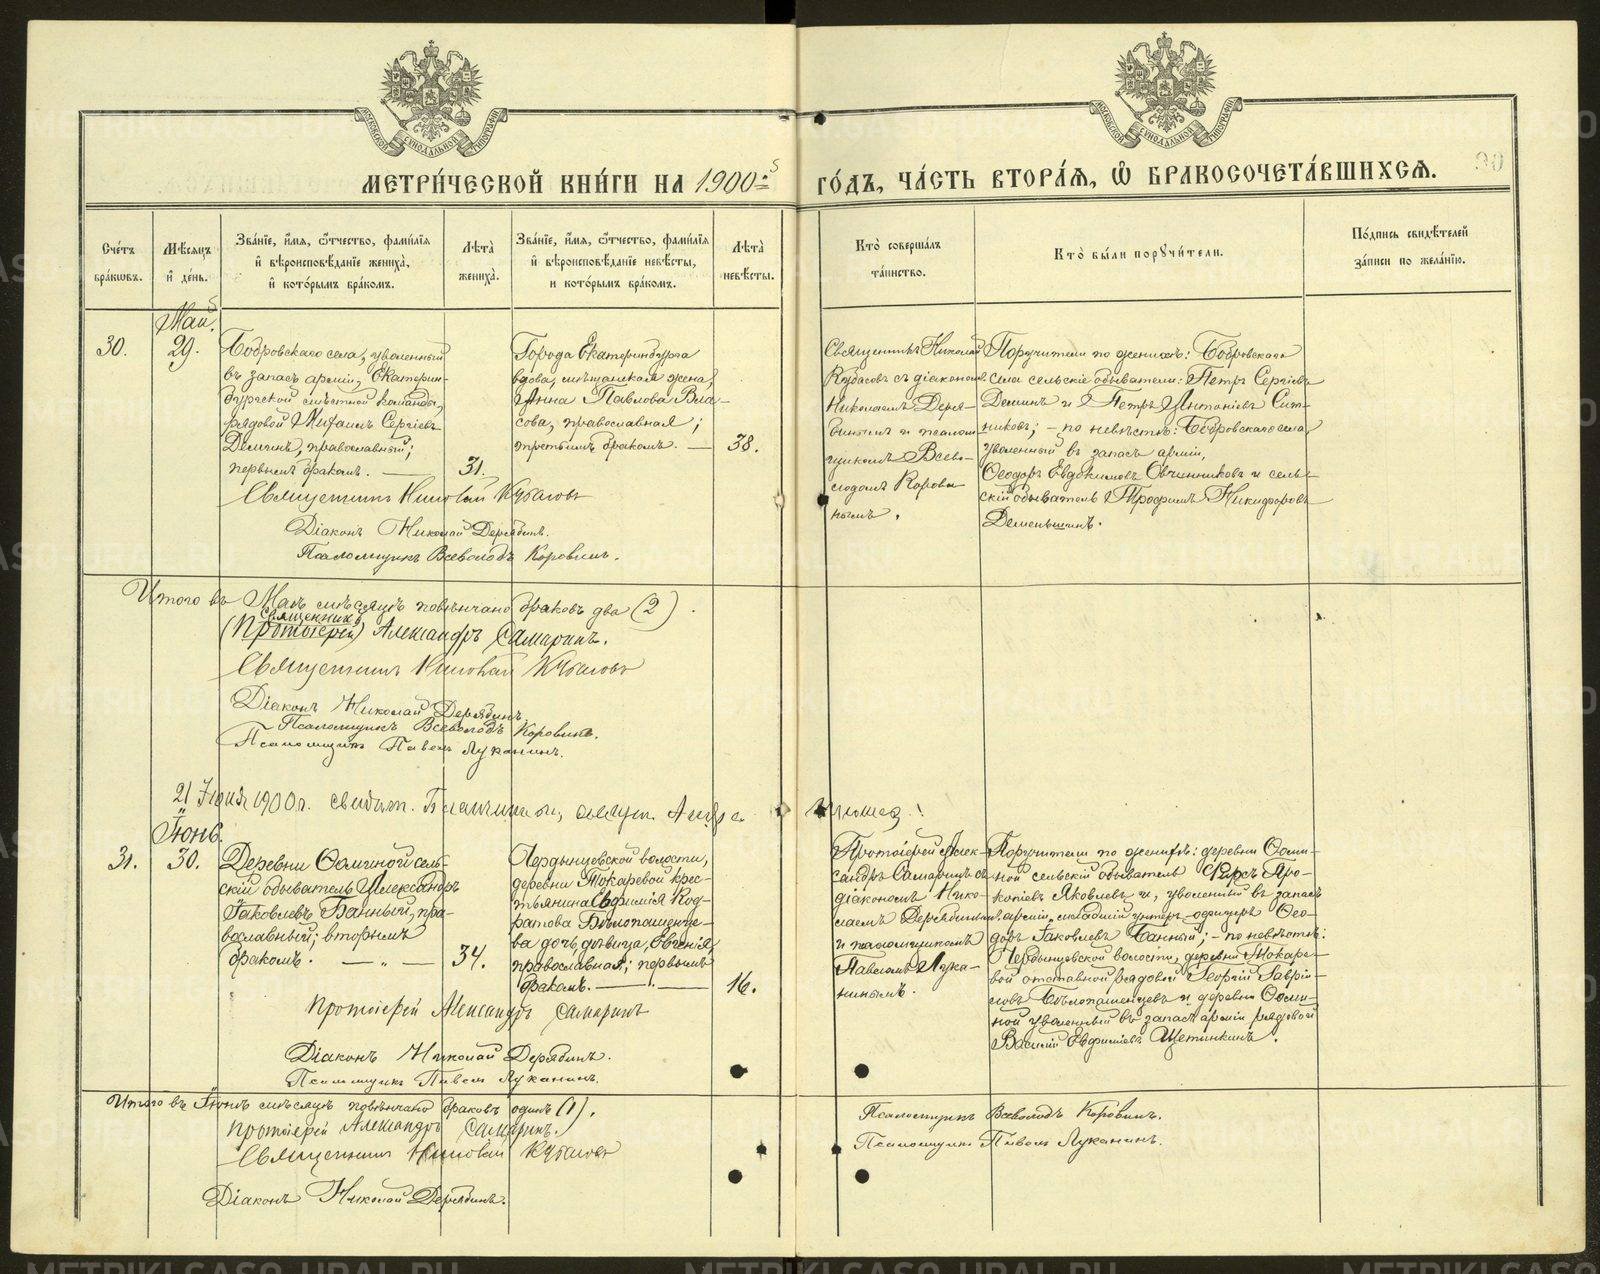 МЕТРИ́ЧЕСКОЙ КНИ́ГИ НА 1900й ГО́ДЪ, ЧА́СТЬ ВТОРА́Я, Ѡ БРАКОСОЧЕТА́ВШИХСЯ.
90
Сче́тъ бра́ковъ.
Мѣ́сяцъ и҆ де́нь.
Зва́нїе, и҆́мя, ѻ҆́тчество, фами́лїя и҆ вѣроисповѣ́данїе жениха̀, и҆ кото́рымъ бра́комъ.
Лѣта̀ жениха̀.
Зва́нїе, и҆́мя, ѻ҆́тчество, фами́лїя и҆ вѣроисповѣ́данїе невѣ́сты, и кото́рымъ бра́комъ.
Лѣта̀ невѣ́сты.
Кто̀ соверша́лъ та́инство.
Кто̀ бы́ли порꙋчи́тели.
По́дпись свидѣ́телей за́писи по жела́нїю.
Май.
30.
29.
Бобровскаго села, уволенный
въ запасъ арміи, Екатерин-
бургской мѣстной команды,
рядовой Михаилъ Сергіевъ
Деминъ, православный;
первымъ бракомъ.
31.
Города Екатеринбурга
вдова, мѣщанская жена,
Анна Павлова Вла-
сова, православная;
третьимъ бракомъ.
38.
Священникъ Николай
Кубасовъ съ діакономъ
Николаемъ Деря-
бинымъ и псалом-
щикомъ Всево-
лодомъ Корови-
нымъ.
Поручители по женихѣ: Бобровскаго
села сельскіе обыватели: Петръ Сергіевъ
Деминъ и Петръ Антоніевъ Сит-
никовъ; - по невѣстѣ: Бобровскаго села,
уволенный въ запасъ арміи,
Ѳеодоръ Евдокимовъ Овчинниковъ и сель-
скій обыватель Трофимъ Никифоровъ
Деменьшинъ.
Священникъ Николай Кубасовъ
Діаконъ Николай Дерябинъ.
Псаломщикъ Всеволодъ Коровинъ.
Итого въ Маѣ мѣсяцѣ повѣнчано браковъ два (2).
Священникъ
(Протоіерей) Александръ Самаринъ.
Священникъ Николай Кубасовъ
Діаконъ Николай Дерябинъ.
Псаломщикъ Всеволодъ Коровинъ.
Псаломщикъ Павелъ Луканинъ.
21 Іюня 1900 г.
Іюнь.
31.
30.
Деревни Осминой сель-
скій обыватель Александръ
Іаковлевъ Банный, пра-
вославный; вторымъ
бракомъ.
34.
деревни Токаревой крес-
тьянина Евфимія Код-
ратова Бѣлопашенце-
ва дочь девица, Евгенія,
православная; первымъ
бракомъ.
16.
Протоіерей Алек-
сандръ Самаринъ съ
діакономъ Нико-
лаемъ Дерябинымъ
и псаломщикомъ
Павломъ Лука-
нинымъ.
Поручители по женихѣ: деревни Осми-
ной сельскій обыватель Киръ Про-
копіевъ Яковлевъ и, уволенный въ запасъ
арміи, младшій унтеръ-офицеръ Ѳео-
доръ Іаковлевъ Банный; - по невѣстѣ:
волости, деревни Токаре-
вой отставной рядовой Георгій Гаврі-
ловъ Бѣлопашенцевъ и деревни Осми-
ной уволенный въ запасъ арміи рядовой
Василій Евфиміевъ Щетинкинъ.
Протоіерей Александръ Самаринъ
Діаконъ Николай Дерябинъ.
Псаломщикъ Павелъ Луканинъ.
Итого въ Іюнѣ мѣсяцѣ повѣнчано браковъ одинъ (1).
Протоіерей Александръ Самаринъ.
Священникъ Николай Кубасовъ
Діаконъ Николай Дерябинъ.
Псаломщикъ Всеволодъ Коровинъ.
Псаломщикъ Павелъ Луканинъ.